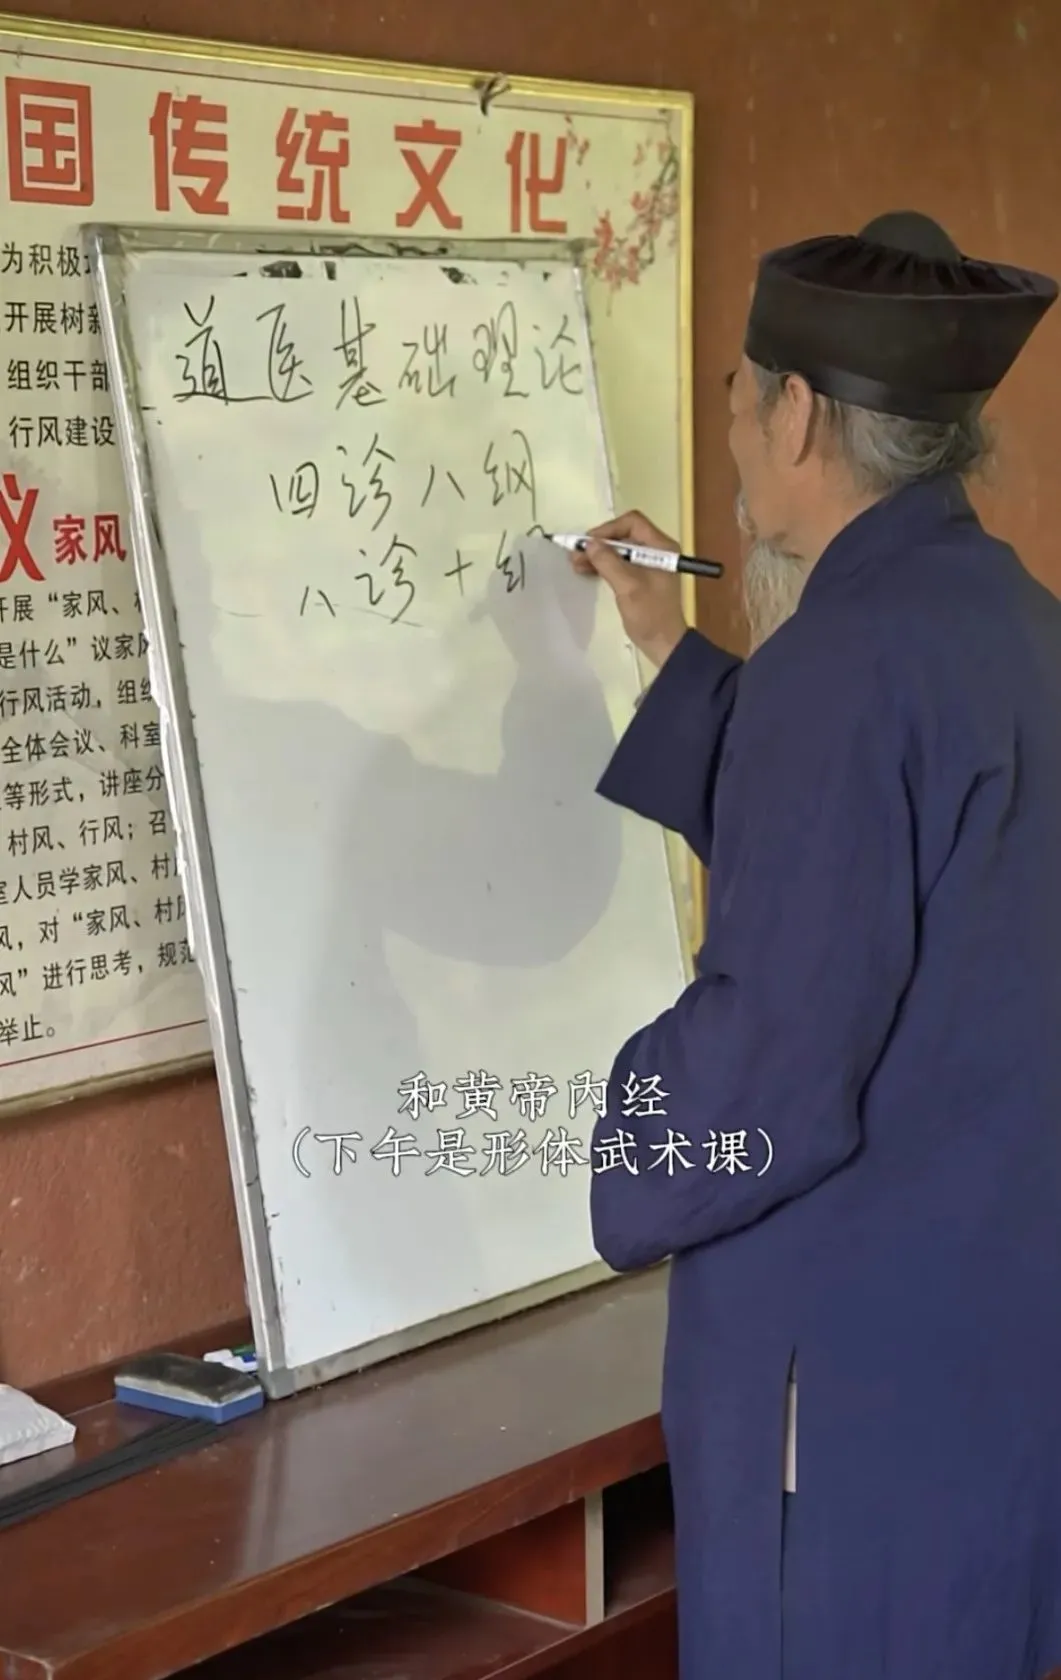 国传统文化
为积极
开展树新
组织干部
行风建设
议家风
开展“家风、村
是什么”议家风
行风活动，组织
全体会议、科室
等形式，讲座分
村风、行风；召
室人员学家风、村风
风，对“家风、村风
风”进行思考，规范
举止。
道医基础理论
四诊八纲
八诊十纲
和黄帝内经
（下午是形体武术课）